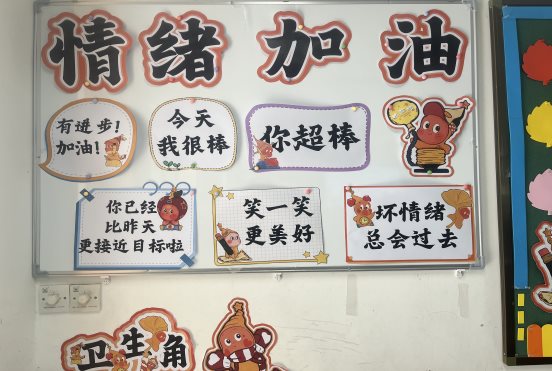 情绪加油
有进步！
加油！
今天
我很棒
你超棒
你已经
比昨天
更接近目标啦
笑一笑
更美好
坏情绪
总会过去
卫生角